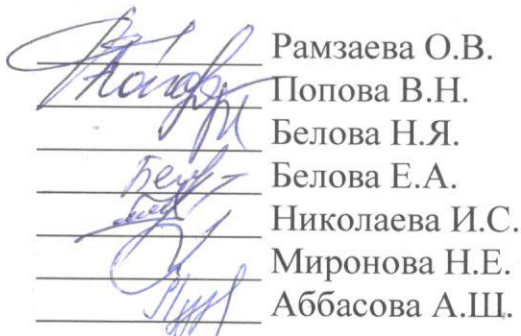 Рамзаева О.В.
Попова В.Н.
Белова Н.Я.
Белова Е.А.
Николаева И.С.
Миронова Н.Е.
Аббасова А.Ш.